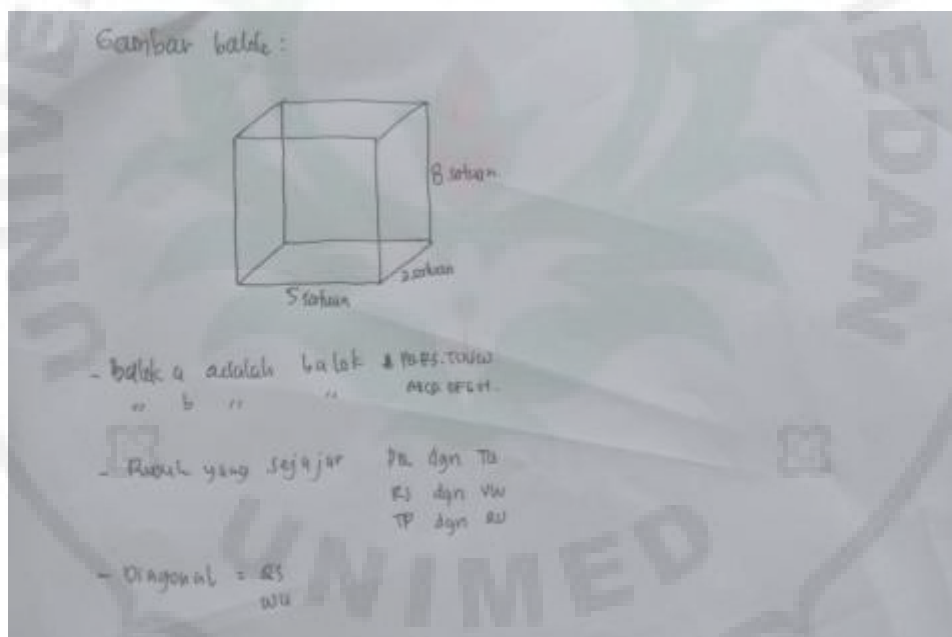 Gambar balok :
8 satuan
2 satuan
5 satuan
- Balok a adalah balok PQRS.TUVW
" b " " ABCD.EFGH.
- Rusuk yang sejajar PQ dgn TU
RS dgn VW
TP dgn QU
- Diagonal = QS
WU
UNIMED